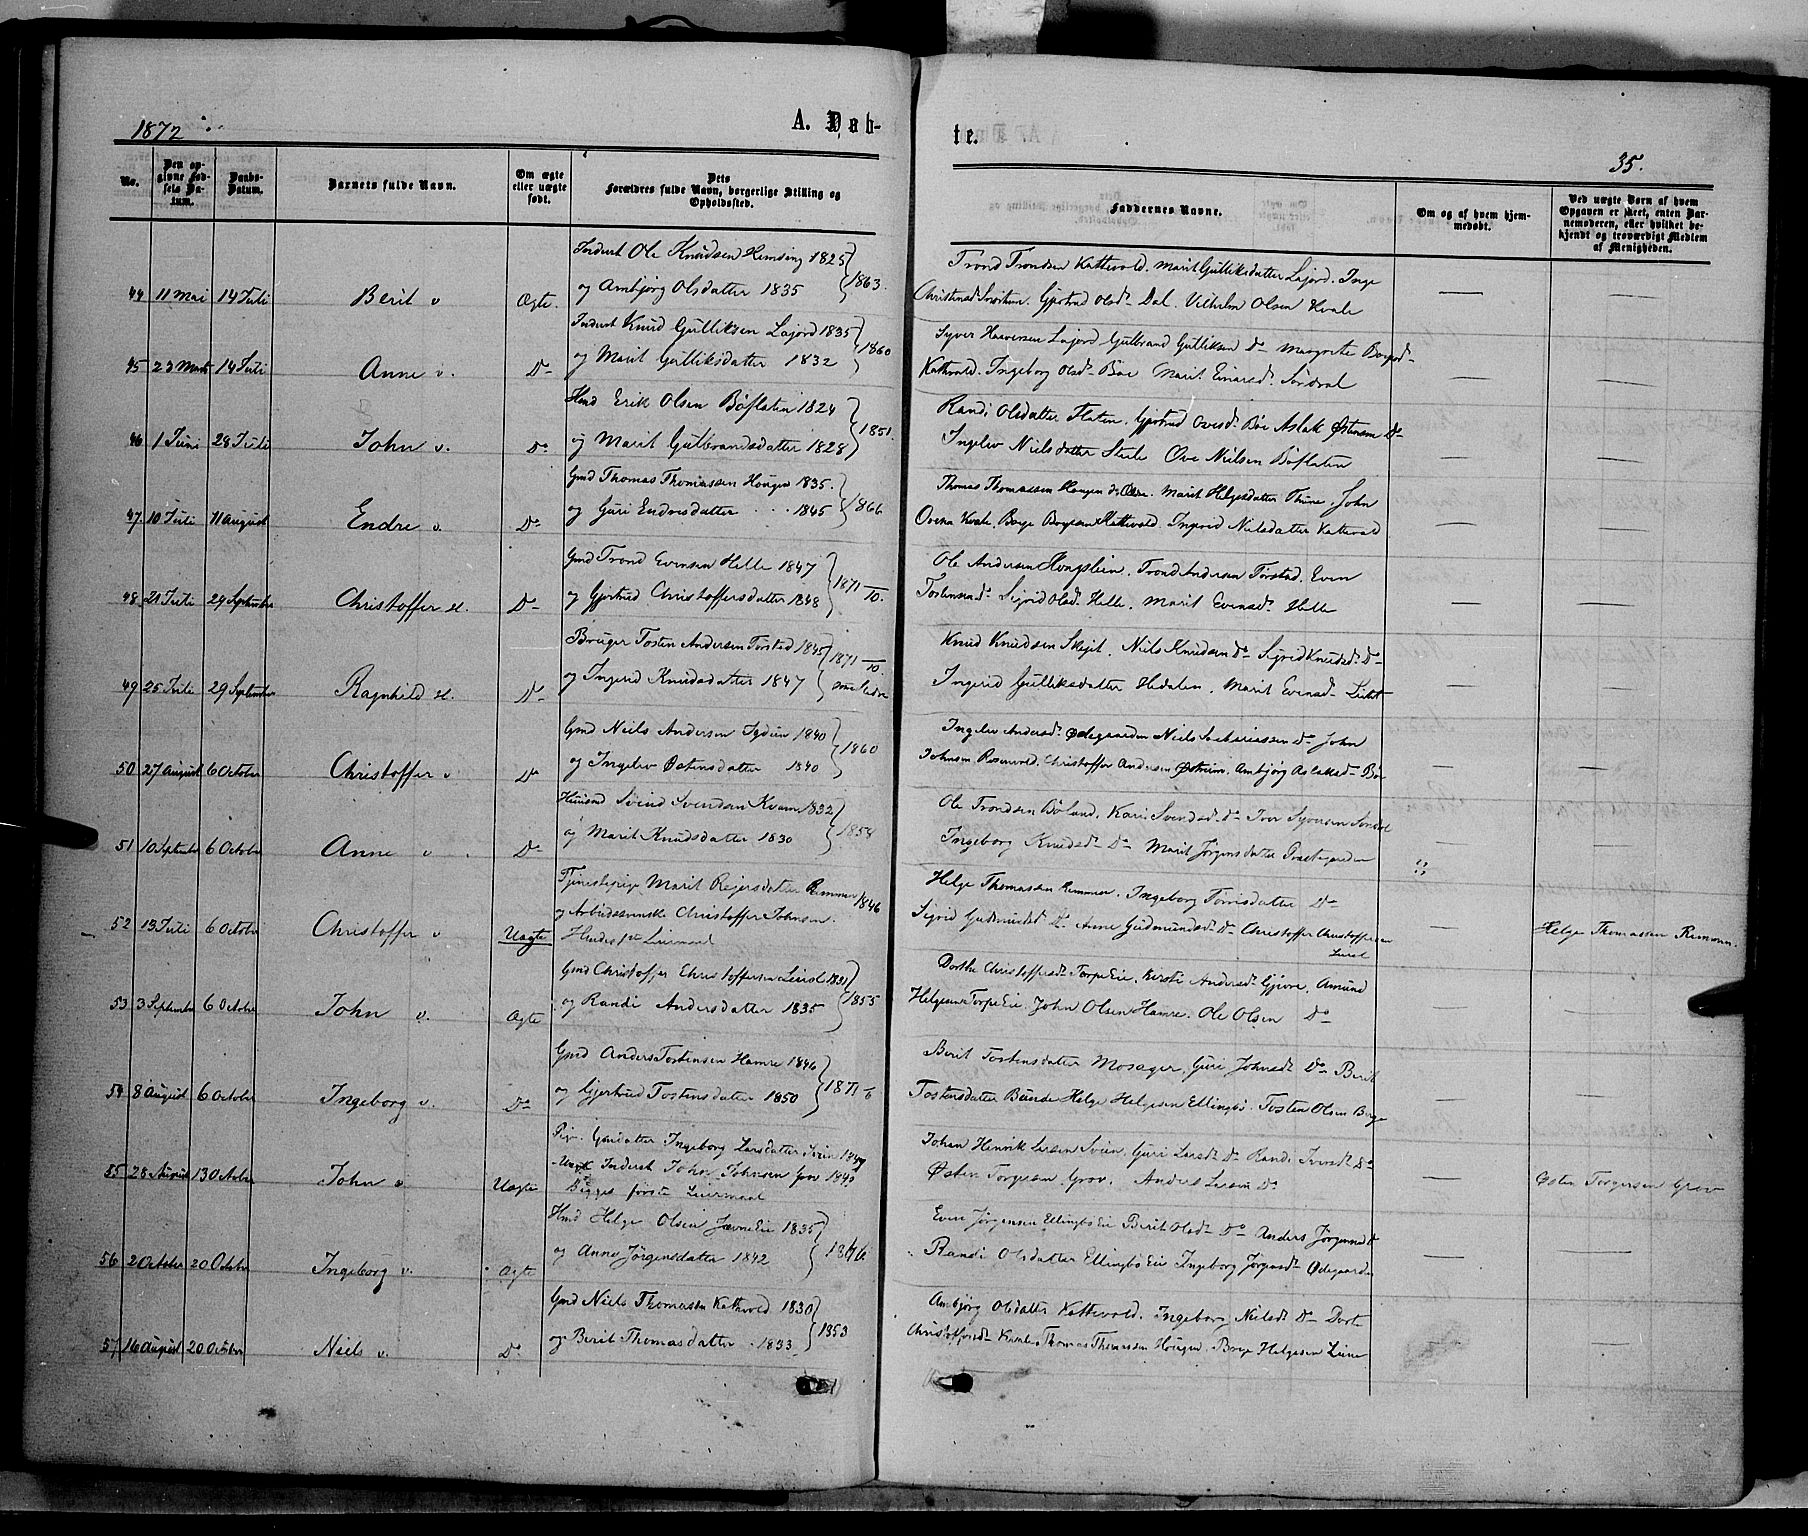 1872
A. Døb-
te.
35.
No.
Den opgivne Fødsels Datum.
Daabs-Datum.
Barnets fulde Navn.
Om ægte eller uægte født.
Dets Forældres fulde Navn, borgerlige Stilling og Opholdssted.
Faddernes Navne.
Om og af hvem hjemmedøbt.
Ved uægte Børn af hvem Opgaven er skeet, enten Barnemoderen, eller hvilket bekjendt og troværdigt Medlem af Menigheden.
44 11 Mai 14 Juli Berit v Ægte.
Inderst Ole Knudsen Remsing 1825
og Ambjørg Olsdatter 1835 } 1863.
Trond Trondsen Kattevold. Marit Gulliksdatter Lajord. Inge
Gjertrud Olsd- Dal. Vilhelm Olsen Kvale
45 23 14 Juli Anne v. Do-
Inderst Knud Gulliksen Lajord 1835
og Marit Gulliksdatter 1832 } 1860
Syver Haaversen Lajord Gulbrand Gulliksen Do- Margrete
Kattevold. Ingeborg Olsd- Bøe Marit Einarsd. Søndrol
46 1 Juni 28 Juli John v. Do
Hmd Erik Olsen Bøflaten 1824
og Marit Gulbrandsdatter 1828 } 1851.
Randi Olsdatter Flaten. Gjertrud Ovesd. Bøe Aslak Østensen Do
Ingelev Nielsdatter Steile Ove Nielsen Bøflaten
47. 10 Juli 11 August Endre v. Do
Gmd Thomas Thomassen Hougen 1835.
og Guri Endresdatter . . . 1845 } 1866
Thomas Thomassen Hougen Marit Helgesdatter Thune. John
Kvale. Børge Børgesen Kattevold. Ingrid Nielsdatter Kattevold
48 21 Juli 29 September Christoffer H. Do-
Gmd Trond Evensen Helle 1847
og Gjertrud Christoffersdatter 1848 } 1871 10.
Ole Andersen Trond Andersen Torstad. Even
Sigrid Olsd. Helle. Marit Evensd. Helle
49 25 Juli 29 September Ragnhild H. Do-
Bruger Tosten Andersen Torstad 1845
og Ingerid Knudsdatter 1847 } 1871 10
Knud Knudsen Niels Knudsen Do Sigrid Knudsd. Do-
Ingerid Gulliksdatter Hedalen. Marit Evensd-
50 27 August 6 October Christoffer v Do
Gmd Niels Andersen 1840
og Ingelev Østensdatter 1840 } 1860
Ingelev Andersd. Ødegaarden Niels Do John
Johnsen Rosenvold. Christoffer Andersen Østreim. Ambjørg Aslaksd- Bø
51 10 September 6 October Anne v Do-
Svend Svendsen Kvam 1832
og Marit Knudsdatter 1830 } 1854
Ole Trondsen Bøland, Kari Svendsd. Do Iver Syversen
Ingeborg Knudsd. Do Marit Jørgensdatter Præstegaarden
52 13 Juli 6 October Christoffer v Uægte
Tjenestepige Marit Rejersdatter Remmen 1846
og Arbeidsmand Christoffer Johnsen.
Hendes første Leiermaal
Helge Thomassen Remmen. Ingeborg Torrisdatter Do
Sigrid Gudmundsd. Do. Anne Gudmundsd. Do Christoffer Christoffersen
Helge Thomassen Remmen.
53 3 September 6 October John v. Ægte
Gmd Christoffer Christoffersen 1831
og Randi Andersdatter 1835 } 1855
Dorthe Christoffersd. Torpe Eie. Kirsti Andersd. Gjøve. Amund
Helgesen Torpe Eie. John Olsen Hamre. Ole Olsen Do
54 8 August 6 October Ingeborg v. Do
Gmd Anders Tostensen Hamre 1846
og Gjertrud Tostensdatter 1850 } 1871 6
Berit Tostensdatter Mosager, Guri Johnsd Do Berit
Tostensdatter Bunde Helge Helgesen Ellingbø. Tosten Olsen Berge
55 28 August 13 October John v Uægte
Pige Ingeborg Larsdatter Svien 1849
Ungk Inderst John Johnsen Grov 1840
Begges første Leiermaal
Johan Henrik Larsen Svien, Guri Larsd. Do Randi Iversd. Do
Østen Torgersen Grov. Anders Larsen Do
Østen Torgersen Grov
56 2 October 20 October Ingeborg v. Ægte
Hmd Helge Olsen Jævne Eie 1835
og Anne Jørgensdatter 1842 } 1866
Even Jørgensen Ellingbø Eie Berit Olsd. Do Anders Jørgensen Do
Randi Olsdatter Ellingbø Eie Ingeborg Jørgensd. Ødegaarden
57 16 August 20 October Niels v. Do
Gmd Niels Thomassen Kattevold 1830
og Berit Thomasdatter 1833 } 1853
Ambjørg Olsdatter Kattevold. Ingeborg Nielsd. Do Dort
Thomas Thomassen Hougen. Børge Helgesen